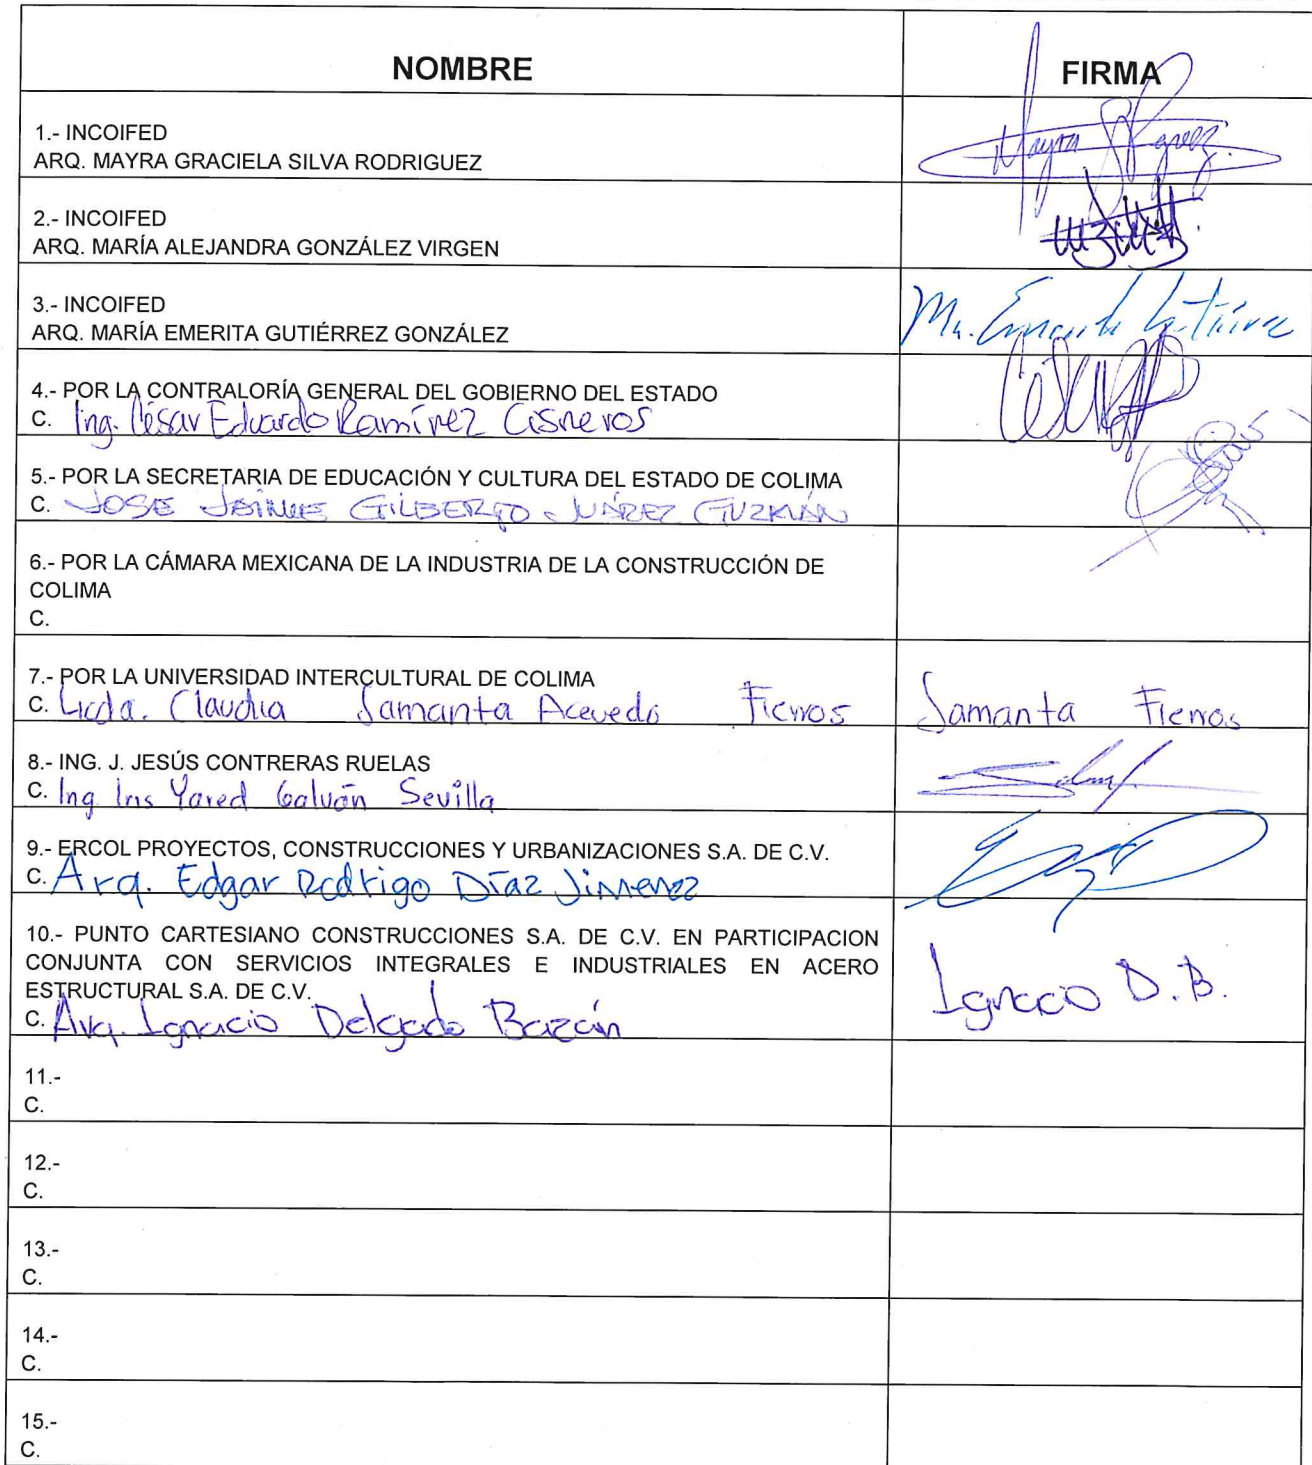 NOMBRE FIRMA
1.- INCOIFED
ARQ. MAYRA GRACIELA SILVA RODRIGUEZ
Mayra
2.- INCOIFED
ARQ. MARÍA ALEJANDRA GONZÁLEZ VIRGEN
3.- INCOIFED
ARQ. MARÍA EMERITA GUTIÉRREZ GONZÁLEZ
Ma.
4.- POR LA CONTRALORÍA GENERAL DEL GOBIERNO DEL ESTADO
C. Ing. César Eduardo Ramírez Cisneros
5.- POR LA SECRETARIA DE EDUCACIÓN Y CULTURA DEL ESTADO DE COLIMA
C. JOSE JAIME GILBERTO JUÁREZ GUZMÁN
6.- POR LA CÁMARA MEXICANA DE LA INDUSTRIA DE LA CONSTRUCCIÓN DE
COLIMA
C.
7.- POR LA UNIVERSIDAD INTERCULTURAL DE COLIMA
C. Licda. Claudia Samanta Acevedo Fierros Samanta Fierros
8.- ING. J. JESÚS CONTRERAS RUELAS
C. Ing. Iris Yared Galván Sevilla
9.- ERCOL PROYECTOS, CONSTRUCCIONES Y URBANIZACIONES S.A. DE C.V.
C. Arq. Edgar Rodrigo Díaz Jimenez
10.- PUNTO CARTESIANO CONSTRUCCIONES S.A. DE C.V. EN PARTICIPACION
CONJUNTA CON SERVICIOS INTEGRALES E INDUSTRIALES EN ACERO
ESTRUCTURAL S.A. DE C.V.
C. Arq. Ignacio Delgado Bazán Ignacio D.B.
11.-
C.
12.-
C.
13.-
C.
14.-
C.
15.-
C.